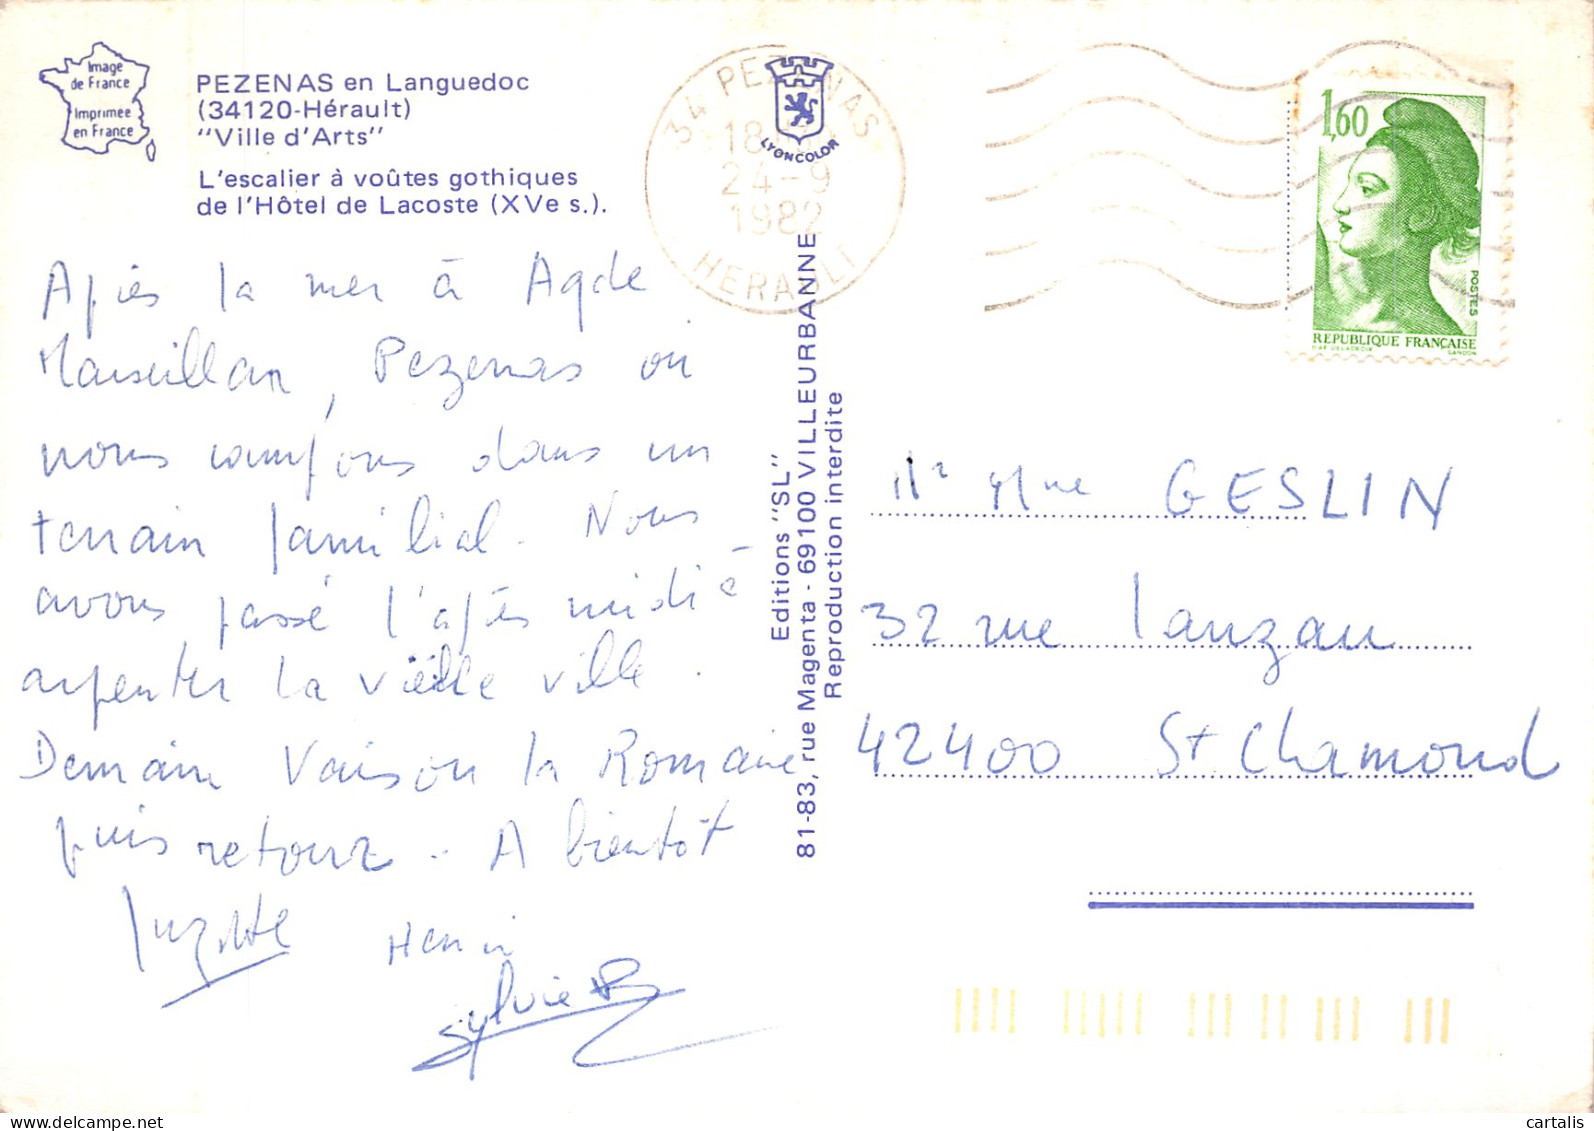 Image
de France
Imprimée
en France
PEZENAS en Languedoc
(34120-Hérault)
"Ville d'Arts"
L'escalier à voûtes gothiques
de l'Hôtel de Lacoste (XVe s.).
34 PEZENAS
18
24-9
1982
HERAULT
LYONCOLOR
1,60
POSTES
REPUBLIQUE FRANÇAISE
D'AP. DELACROIX GANDON
Après la mer à Agde
Marseillan, Pezenas ou
nous campons dans un
terrain familial. Nous
avons passé l'après midi à
arpenter la vieille ville.
Demain Vaison la Romaine
puis retour. A bientôt
Suzette Henri
Sylvie
Editions "SL"
81-83, rue Magenta - 69100 VILLEURBANNE
Reproduction interdite
Mr Mme GESLIN
32 rue Lauzan
42400 St Chamond
cartalis